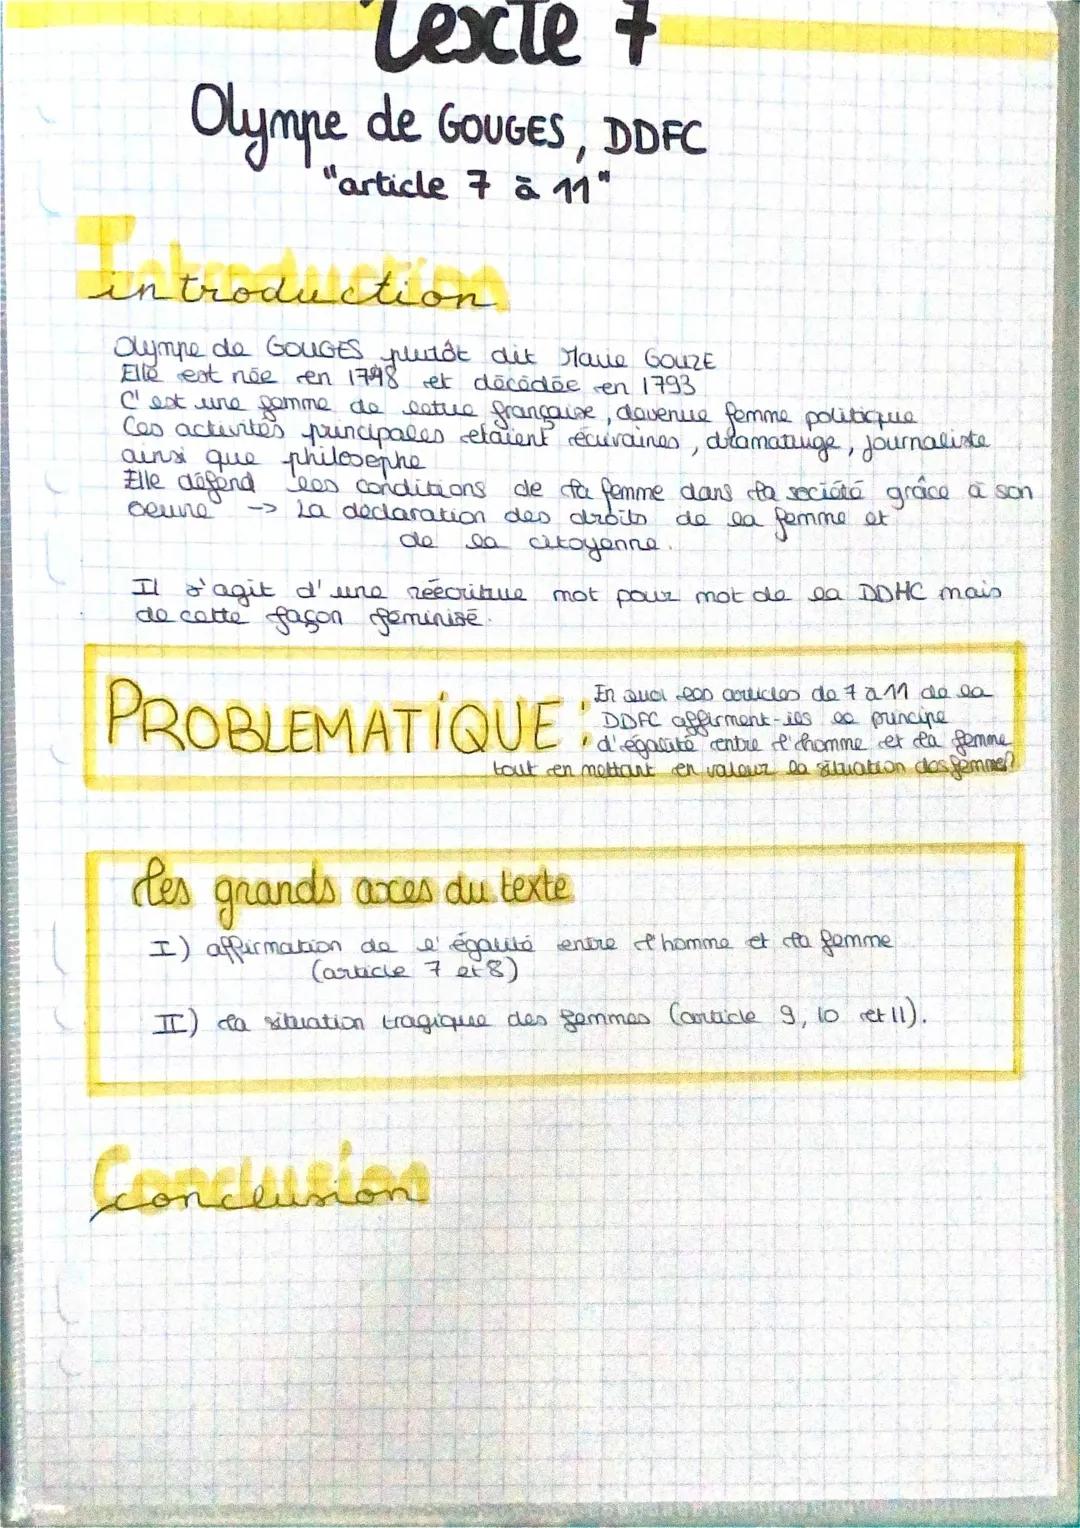 Texte 7
Olympe de GOUGES, DDFC
"article 7 à 11"
Introduction
introduction
Olympe de GOUGES plutôt dit Marie GOUZE
Elle est née en 1748 et décédée en 1793
C'est une femme de lettre française, devenue femme politique
Ces activités principales etaient écrivaines, dramatuge, journaliste
ainsi que philosophe
Elle défend les conditions de la femme dans la société grâce à son
oeuvre -> La déclaration des droits de la femme et
de la citoyenne.
Il s'agit d'une réécriture mot pour mot de la DDHC mais
de cette façon féminisé.
PROBLEMATIQUE :
En quoi les articles de 7 à 11 de la
DDFC affirment-ils le principe
d'égalité entre l'homme et la femme
tout en mettant en valeur la situation des femmes?
Les grands axes du texte
I) affirmation de l'égalité entre l'homme et la femme
(article 7 et 8)
II) La situation tragique des femmes (article 9, 10 et 11).
Conclusion
conclusion